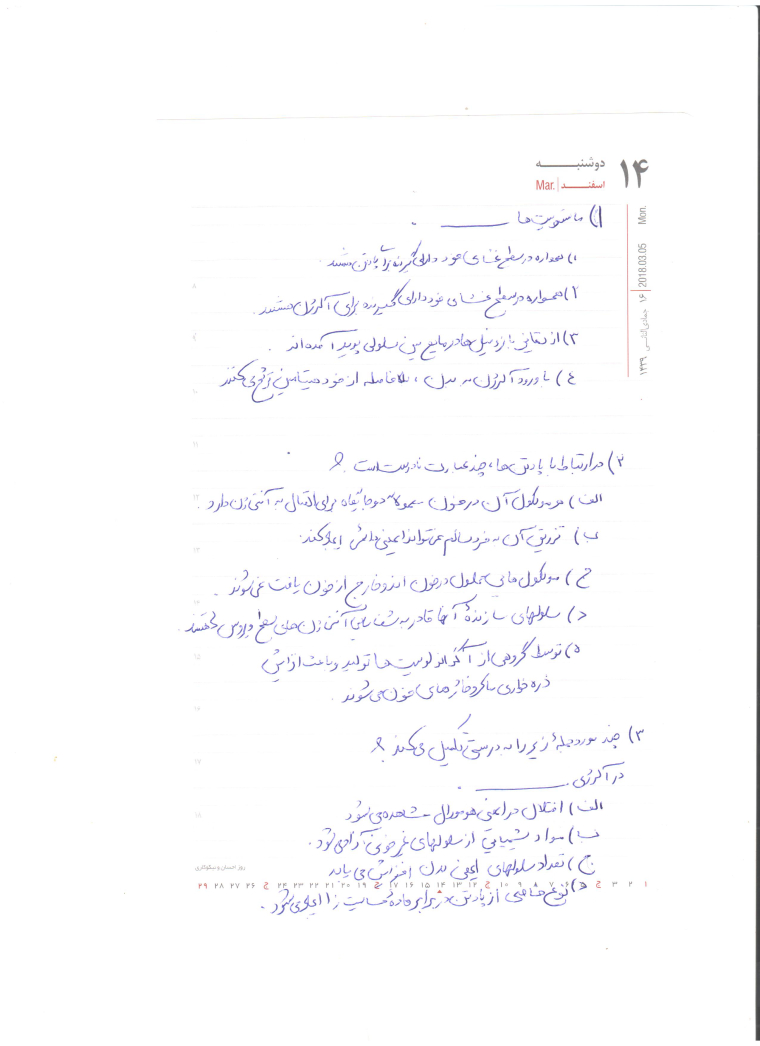 ۱۴
دوشنبه
اسفند | Mar.
Mon.
2018.03.05
۱۶ جمادی‌الثانی ۱۴۳۹
۱) ماستوسیت‌ها ــــــــ .
۱) همواره در سطح غشای خود دارای گیرنده یا پادتن هستند .
۲) همواره در سطح غشای خود دارای گیرنده برای آلرژن هستند .
۳) از تمایز بازوفیل‌ها در مایع بین سلولی پدید آمده‌اند .
٤) با ورود آلرژن به بدن ، بلافاصله از خود هیستامین ترشح می‌کنند
۲) در ارتباط با پادتن‌ها، چند عبارت نادرست است ؟
الف) هر مولکول آن در خون معمولاً دو جایگاه برای اتصال به آنتی‌ژن دارد .
ب) تزریق آن به فرد سالم می‌تواند ایمنی دائمی ایجاد کند .
ج) مولکول‌هایی محلول در خون اند و خارج از خون یافت نمی‌شوند .
د) سلولهای سازندهٔ آنها قادر به شناسایی آنتی ژن‌های سطح ویروس هستند .
ه) توسط گروهی از آگرانولوسیت‌ها تولید و باعث افزایش
ذره خواری ماکروفاژهای خون می‌شوند .
۳) چند مورد جملهٔ زیر را به درستی تکمیل می‌کند ؟
در آلرژی ــــــــ .
الف) اختلال در ایمنی هومورال مشاهده می‌شود
ب) مواد شیمیایی از سلولهای غیر خونی آزاد می‌شود .
ج) تعداد سلولهای ایمنی بدن افزایش می یابد
روز احسان و نیکوکاری
۱ ۲ ۳ ج ۵ ۶ ۷ ۸ ۹ ۱۰ ج ۱۲ ۱۳ ۱۴ ۱۵ ۱۶ ۱۷ ج ۱۹ ۲۰ ۲۱ ۲۲ ۲۳ ۲۴ ج ۲۶ ۲۷ ۲۸ ۲۹
ه) نوع خاصی از پادتن در برابر مادهٔ حساسیت زا ایجاد می‌شود .